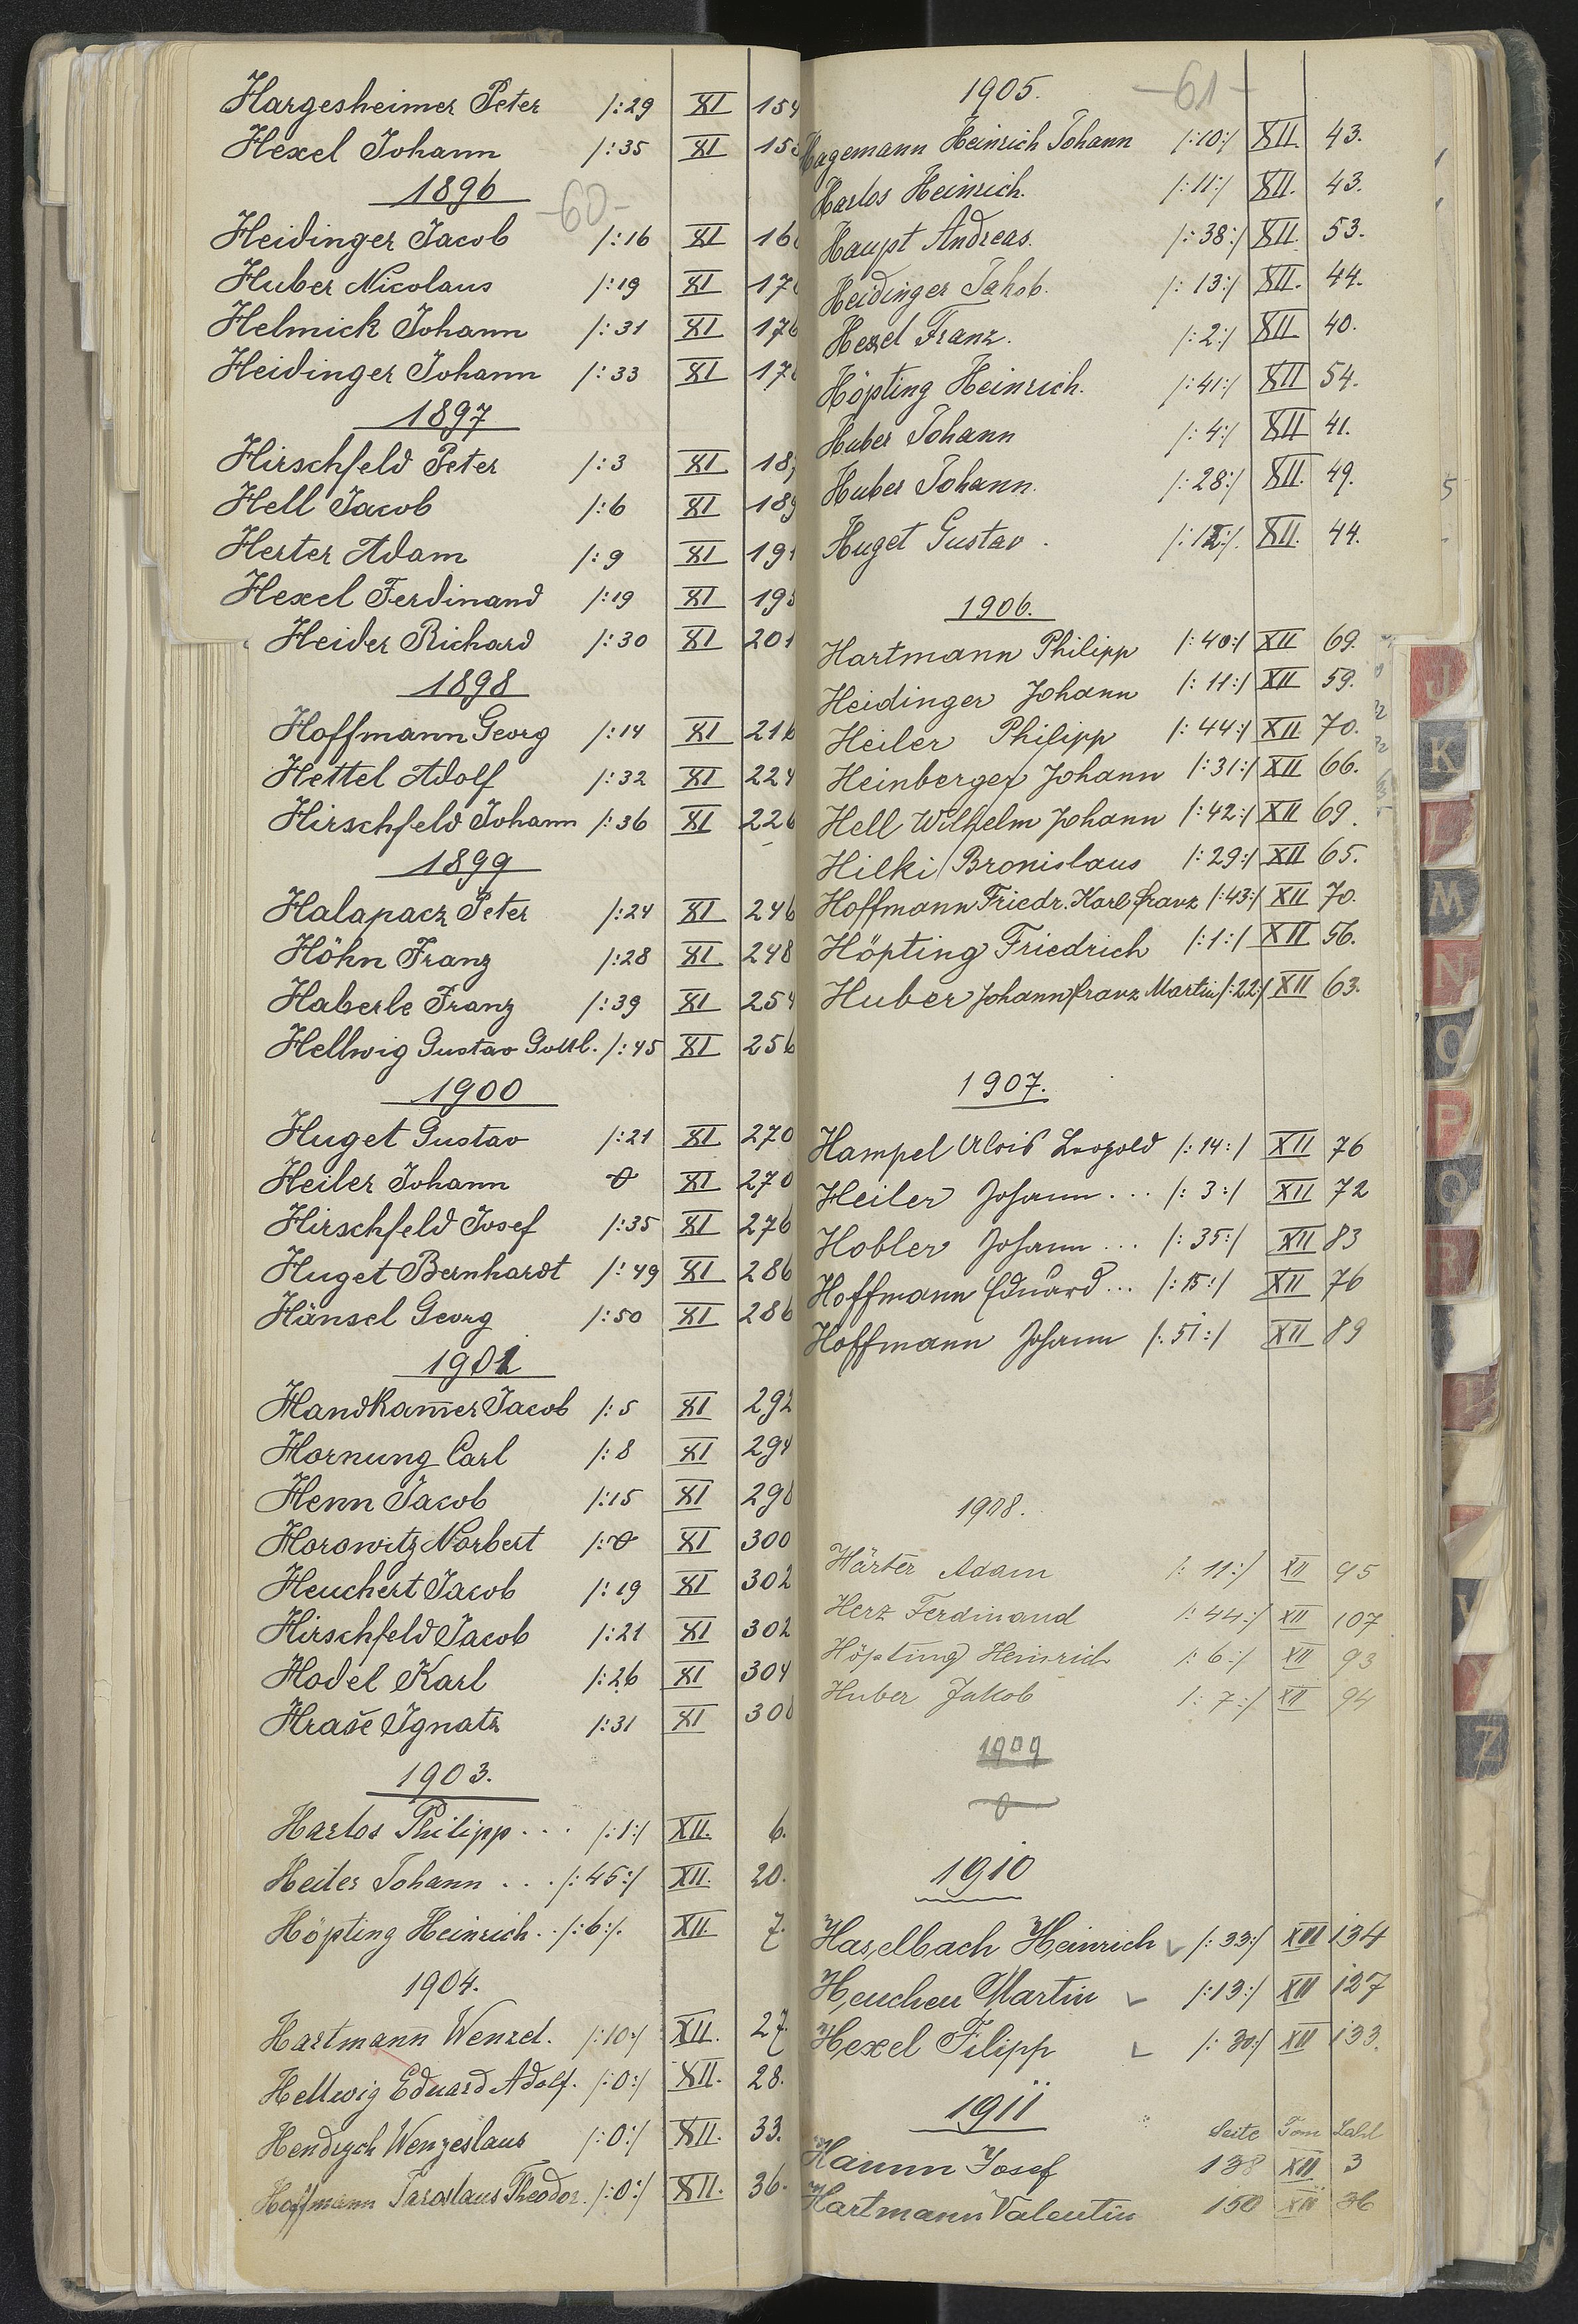 Hargesheimer Peter /:29 XI 154
Hexel Johann /:35 XI
1896
-60-
Heidinger Jacob /:16 XI
Huber Nicolaus /:19 XI
Helmick Johann /:31 XI 176
Heidinger Johann /:33 XI
1897
Hirschfeld Peter /:3 XI
Hell Jacob /:6 XI 189
Herter Adam /:9 XI 191
Hexel Ferdinand /:19 XI
Heider Richard /:30 XI 201
1898
Hoffmann Georg /:14 XI 216
Hettel Adolf /:32 XI 224
Hirschfeld Johann /:36 XI 226
1899
Halapacz Peter /:24 XI 246
Höhn Franz /:28 XI 248
Haberle Franz /:39 XI 254
Hellwig Gustav Gottl. /:45 XI 256
1900
Huget Gustav /:21 XI 270
Heiler Johann 0 XI 270
Hirschfeld Josef /:35 XI 276
Huget Bernhardt /:49 XI 286
Hänsel Georg /:50 XI 286
1901
Handkam̅er Jacob /:5 XI 292
Hornung Carl /:8 XI 294
Henn Jacob /:15 XI
Horowitz Norbert /:0 XI 300
Heuchert Jacob /:19 XI 302
Hirschfeld Jacob /:21 XI 302
Hodel Karl /:26 XI 304
Hrašé Ignatz /:31 XI
1903.
Harlos Philipp . . . /:1:/ XII. 6.
Heiler Johann . . . /:45:/ XII. 20.
Höpting Heinrich . . /:6:/. XII. 7.
1904.
Hartmann Wenzel. /:10:/ XII. 27.
Hellwig Eduard Adolf. /:0:/ XII. 28.
Hendrych Wenzeslaus /:0:/ XII. 33.
Hoffmann Jaroslaus Theodor. /:0:/ XII. 36.
1905.
-61-
Hagemann Heinrich Johann /:10:/ XII. 43.
Harlos Heinrich. /:11:/ XII. 43.
Haupt Andreas. /:38:/ XII. 53.
Heidinger Jakob. /:13:/ XII. 44.
Hexel Franz. /:2:/ XII 40.
Höpting Heinrich. /:41:/ XII 54.
Huber Johann /:4:/ XII 41.
Huber Johann. /:28:/ XII. 49.
Huget Gustav . /:12:/. XII. 44.
1906.
Hartmann Philipp /:40:/ XII 69.
Heidinger Johann /:11:/ XII 59.
Heiler Philipp /:44:/ XII. 70.
Heinberger Johann /:31:/ XII 66.
Hell Wilhelm Johann /:42:/ XII 69.
Hilki Bronislaus /:29:/ XII 65.
Hoffmann Friedr. Karl Franz /:43:/ XII 70.
Höpting Friedrich /:1:/ XII 56.
Huber Johann Franz Martin /:22:/ XII 63.
1907.
Hampel Alois Leopold /:14:/ XII 76
Heiler Johann . . . /:3:/ XII 72
Hobler Johann . . . /:35:/ XII 83
Hoffmann Eduard . . . /:15:/ XII 76
Hoffmann Johann /:51:/ XII 89
1908.
Härter Adam /:11:/ XII 95
Herz Ferdinand /:44:/ XII 107
Höpting Heinrich /:6:/ XII 93
Huber Jakob /:7:/ XII 94
1909
0
1910
Haselbach Heinrich /:33:/ XII 134
Heuchen Martin /:13:/ XII 127
Hexel Filipp /:30:/ XII 133.
1911
Seite Tom Zahl
Hamm Josef 138 XII 3
Hartmann Valentin 150 XII 36
J
K
L
M
N
O
P
Q
R
Z